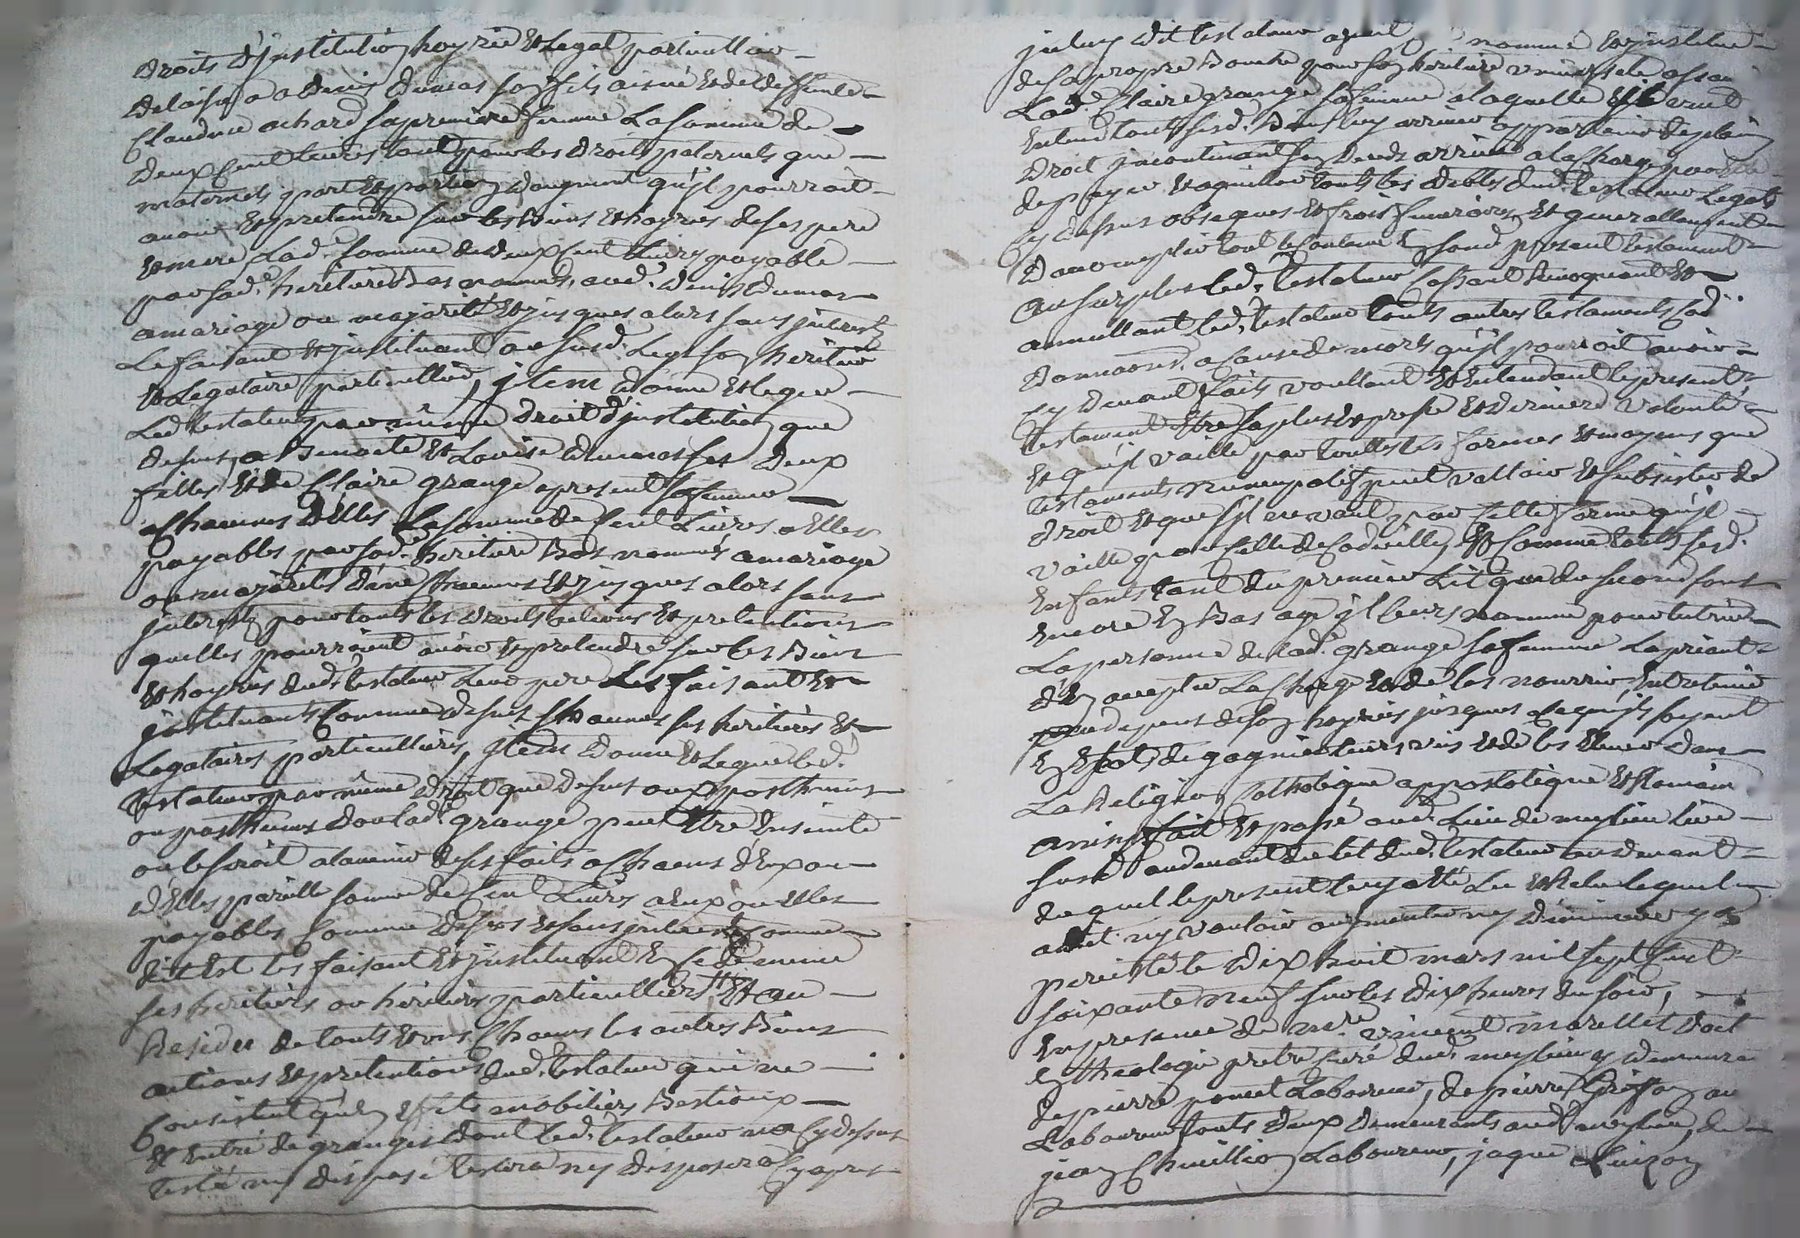 droits d'justitution hoyrie et legat particullier
delaisse a denis dumas son fils aisné et de deffunte
Claudine achard sa premiere femme La somme de
deux cent livres tant pour les droits paternels que
maternels part et portion daugment qu'il pourroit
avoir et pretendre sur les biens et hoyries de ses pere
et mere Lad.e somme de deux cent livres payable
par sad.e heritiere bas nommée aud.t denis dumas
a mariage ou majorité et jusques alors sans jnterest
Le faisant et jnstituant au susd. Legt son heritier
et Legataire particullier, jtem donne et legue
Led testateur par même droit d'jnstitution que
desus a Benoite et Louise dumas ses deux
filles et de Claire grange apresent sa femme
a Chacunes d'Elles La somme de Cent Livres a Elles
payables par sad.e heritiere bas nommée a mariage
ou majorité d'une Chacunes et jusques alors sans
jnterest pour touts les droits actions et pretentions
quelles pourroient avoir et pretendre sur les biens
et hoyries dud. testateur Leur pere Les faisant et
jnstituant Comme desus Chacunes ses heritieres et
Legataires particullieres, jtem donne et Legue led.
testateur par même droit que desus aux posthumes
ou posthumes dont lad.e grange peut Etre Enceinte
ou le seroit a lavenir de ses faits a Chacuns d'Eux ou
d'Elles pareille somme de Cent Livres a Eux ou Elles
payables Comme desus et sans jnterest Comme
dit Est les faisant et jnstituant En ce de même
ses heritiers ou heritieres particulliers, Et au
Residu de touts et uns Chacuns les autres biens
actions et pretentions dud. testateur qui ne
Consistent qu'en Effets mobiliers bestiaux
Et Entré de granges dont led. testateur na Cy dessus
testé ny disposé testera ny disposera Cy apres
jceluy dit testateur ayant nommé et jnstitué
de sa propre bouche pour son heritiere universelle a sçavoir
Lad.e Claire grange sa femme a laquelle Il veut
Entend touts sesd. biens luy arriver appartenir de plain
droit jncontinant son deceds arrivé a la Charge par elle
de payer et aquitter touts les debtes dud. testateur Legats
Cy desus obseques et frois funeraires et generallement
daccomplir tout le Contenu En sond present testament
au surplus led. testateur Cassant Revoquant et
annullant led. testateur touts autres testaments Cod.
donnaons. a Cause de mort qu'il pourroit avoir
Cy devant faits voullant et Entendant le present
testament Etre sa plus Expresse et derniere volonté
Et qu'il vaille par touttes les formes et moyens que
testaments nuncupatif peut valloir et subsister de
droit Et que s'il ne vaut par cette forme qu'il
vaille par Celle de Codicille, Et Comme touts sesd.
Enfants tant du premier Lit que du second sont
Encore En bas age jl leurs nomme pour tutrice
La personne de lad.e grange sa femme La priant
d'En accepter La Charge et de les nourrir Entretenir
aux depens de son hoyries jusques a ce qu'ils soyent
En Etat de gagner leurs vies et de les Elever dans
La Religion Catholique appostolique et Romaine
ainsy fait et passé aud. Lieu de meylieu lieu
susd. au devant du lit dud. testateur au devant
duquel le present luy a été Lu et Relu lequel
a dit ny vouloir augmenter ny diminuer y a
persisté le dix huit mars mil sept cent
soixante neuf sur les dix heures du soir,
En presence de m.re vincent morellet doct
En theologie pretre Curé dud. meylieu y demeurant
de pierre poncet Laboureur, de pierre Griffon au
Laboureur touts deux demeurants aud. meylieu, de
jean Chuillion Laboureur, jaque Luizon